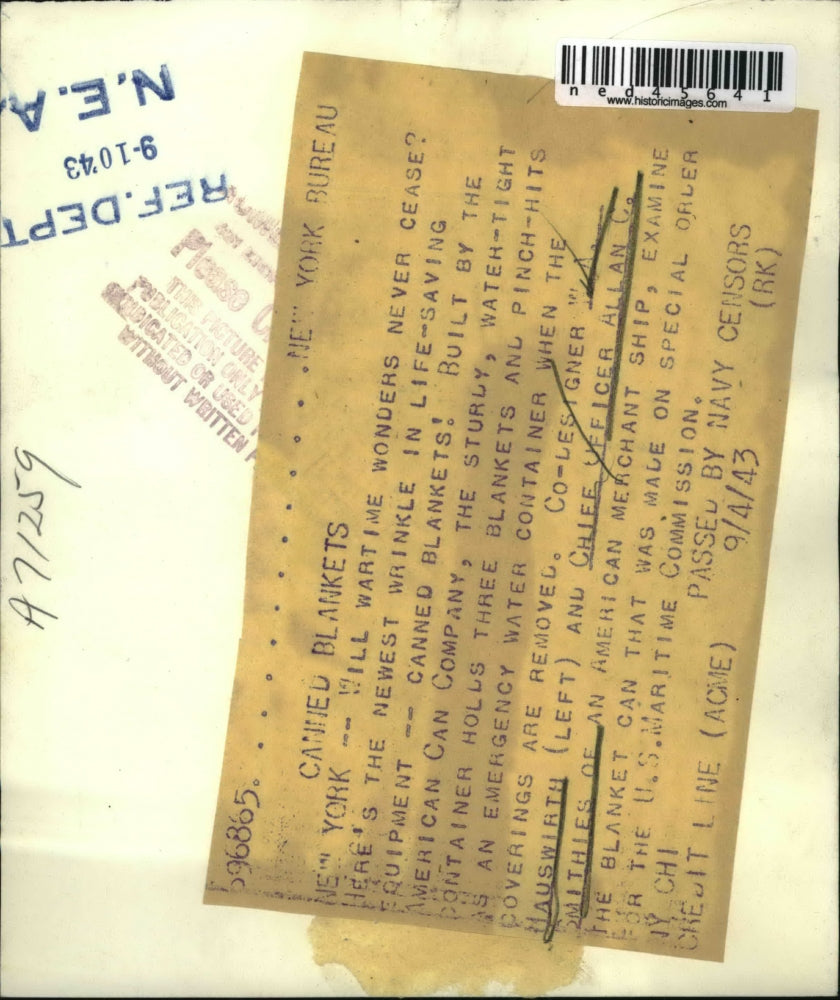 N.E.A.
9-10'43
REF. DEPT
ned45641
www.historicimages.com
Please
THIS PICTURE
PUBLICATION ONLY
SYNDICATED OR USED
WITHOUT WRITTEN
A71259
596865. . . . . . . . . . . . . . . . NEW YORK BUREAU
CANNED BLANKETS
NEW YORK -- WILL WARTIME WONDERS NEVER CEASE?
HERE'S THE NEWEST WRINKLE IN LIFE-SAVING
EQUIPMENT -- CANNED BLANKETS! BUILT BY THE
AMERICAN CAN COMPANY, THE STURDY, WATER-TIGHT
CONTAINER HOLDS THREE BLANKETS AND PINCH-HITS
AS AN EMERGENCY WATER CONTAINER WHEN THE
COVERINGS ARE REMOVED. CO-DESIGNER W. A.
HAUSWIRTH (LEFT) AND CHIEF OFFICER ALLAN C.
SMITHIES OF AN AMERICAN MERCHANT SHIP, EXAMINE
THE BLANKET CAN THAT WAS MADE ON SPECIAL ORDER
FOR THE U.S.MARITIME COMMISSION.
NY CHI PASSED BY NAVY CENSORS
CREDIT LINE (ACME) 9/4/43 (RK)